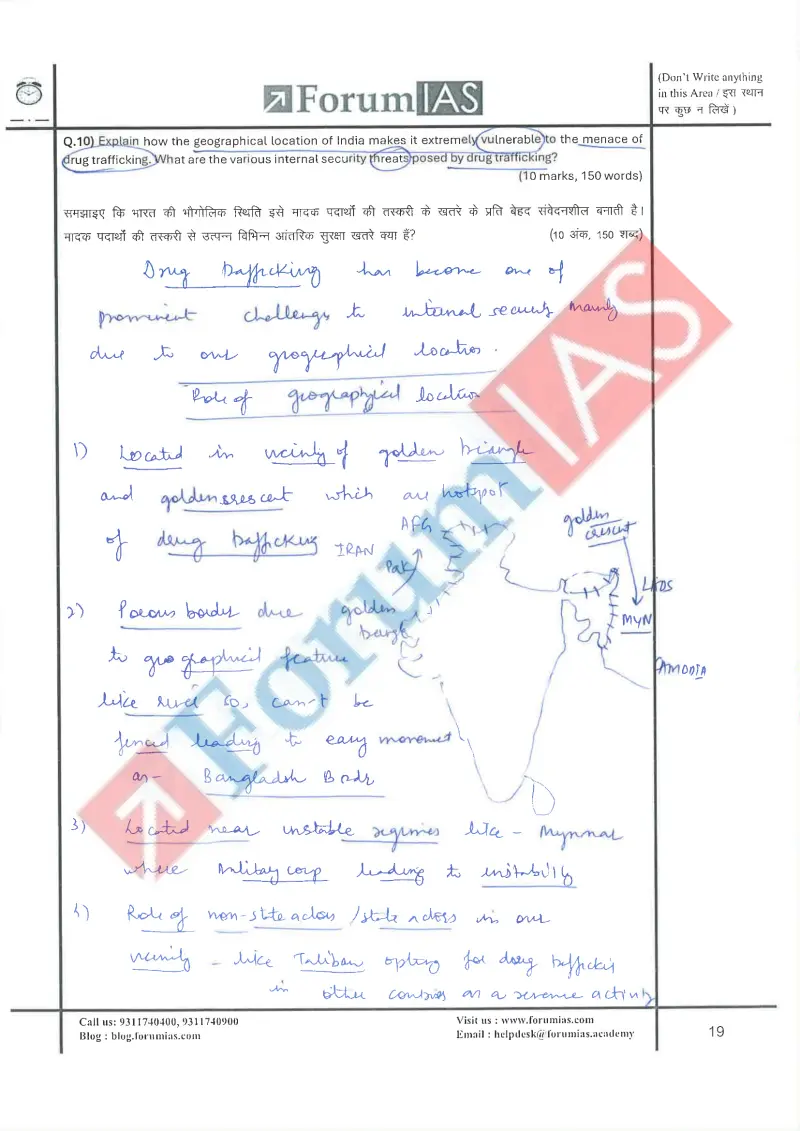 (Don't Write anything
in this Area / इस स्थान
पर कुछ न लिखें )
ForumIAS
Q.10) Explain how the geographical location of India makes it extremely vulnerable to the menace of
drug trafficking. What are the various internal security threats posed by drug trafficking?
(10 marks, 150 words)
समझाइए कि भारत की भौगोलिक स्थिति इसे मादक पदार्थों की तस्करी के खतरे के प्रति बेहद संवेदनशील बनाती है।
मादक पदार्थों की तस्करी से उत्पन्न विभिन्न आंतरिक सुरक्षा खतरे क्या हैं?
(10 अंक, 150 शब्द)
Drug trafficking has become one of
prominent challenges to internal security mainly
due to our geographical location.
Role of geographical location
1) Located in vicinity of golden triangle
and golden crescent which are hotspot
of drug trafficking
AFG
IRAN
Pak
golden
crescent
LAOS
MYN
golden
2) Porous border due
to geographical feature
like so, can't be
fenced leading to easy movement
as - Bangladesh Bodr
3) Located near unstable regimes like - Mynmar
where Military coup leading to instability
4) Role of non-state actors / state actors in our
vicinity - like Taliban opting for drug trafficking
in other countries as a revenue activity
ForumIAS
Call us: 9311740400, 9311740900
Blog : blog.forumias.com
Visit us : www.forumias.com
Email : helpdesk@forumias.academy
19